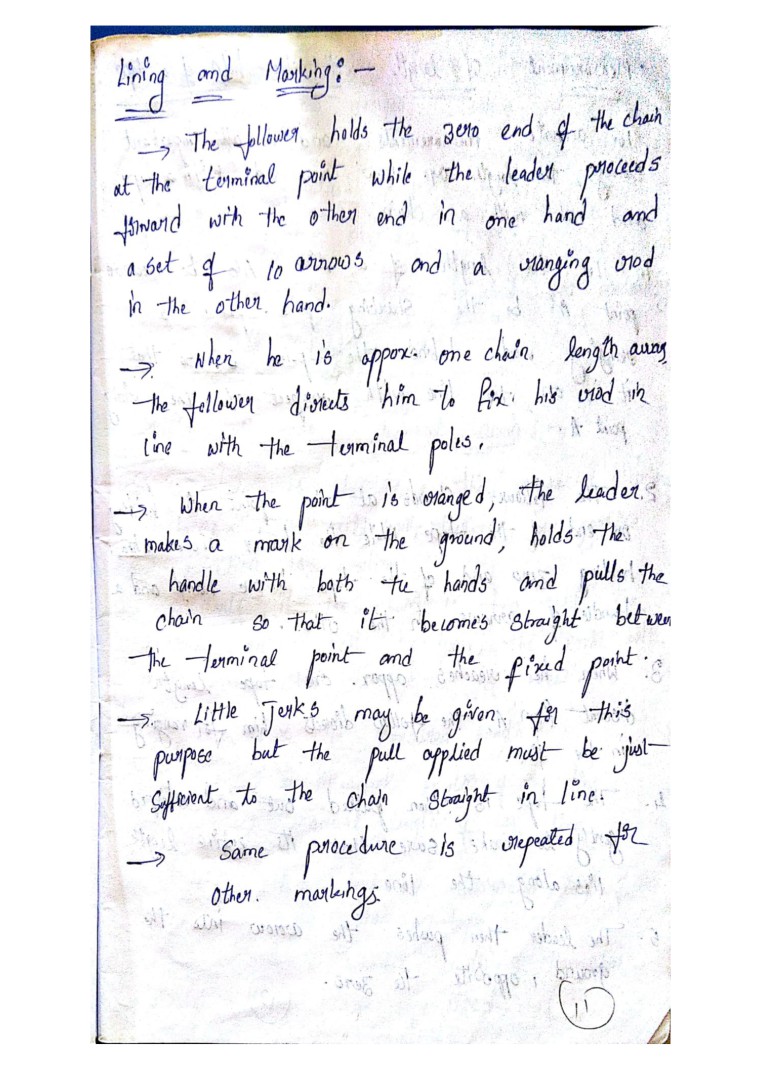 Lining and Marking:-
→ The follower holds the zero end of the chain
at the terminal point while the leader proceeds
forward with the other end in one hand and
a set of 10 arrows and a ranging rod
in the other hand.
→ When he is appox. one chain length away
the follower directs him to fix his rod in
line with the terminal poles.
→ When the point is ranged, the leader
makes a mark on the ground, holds the
handle with both the hands and pulls the
chain so that it becomes straight between
the terminal point and the fixed point.
→ Little Jerks may be given for this
purpose but the pull applied must be just
Sufficient to the chain straight in line.
→ Same procedure is repeated for
other markings.
11